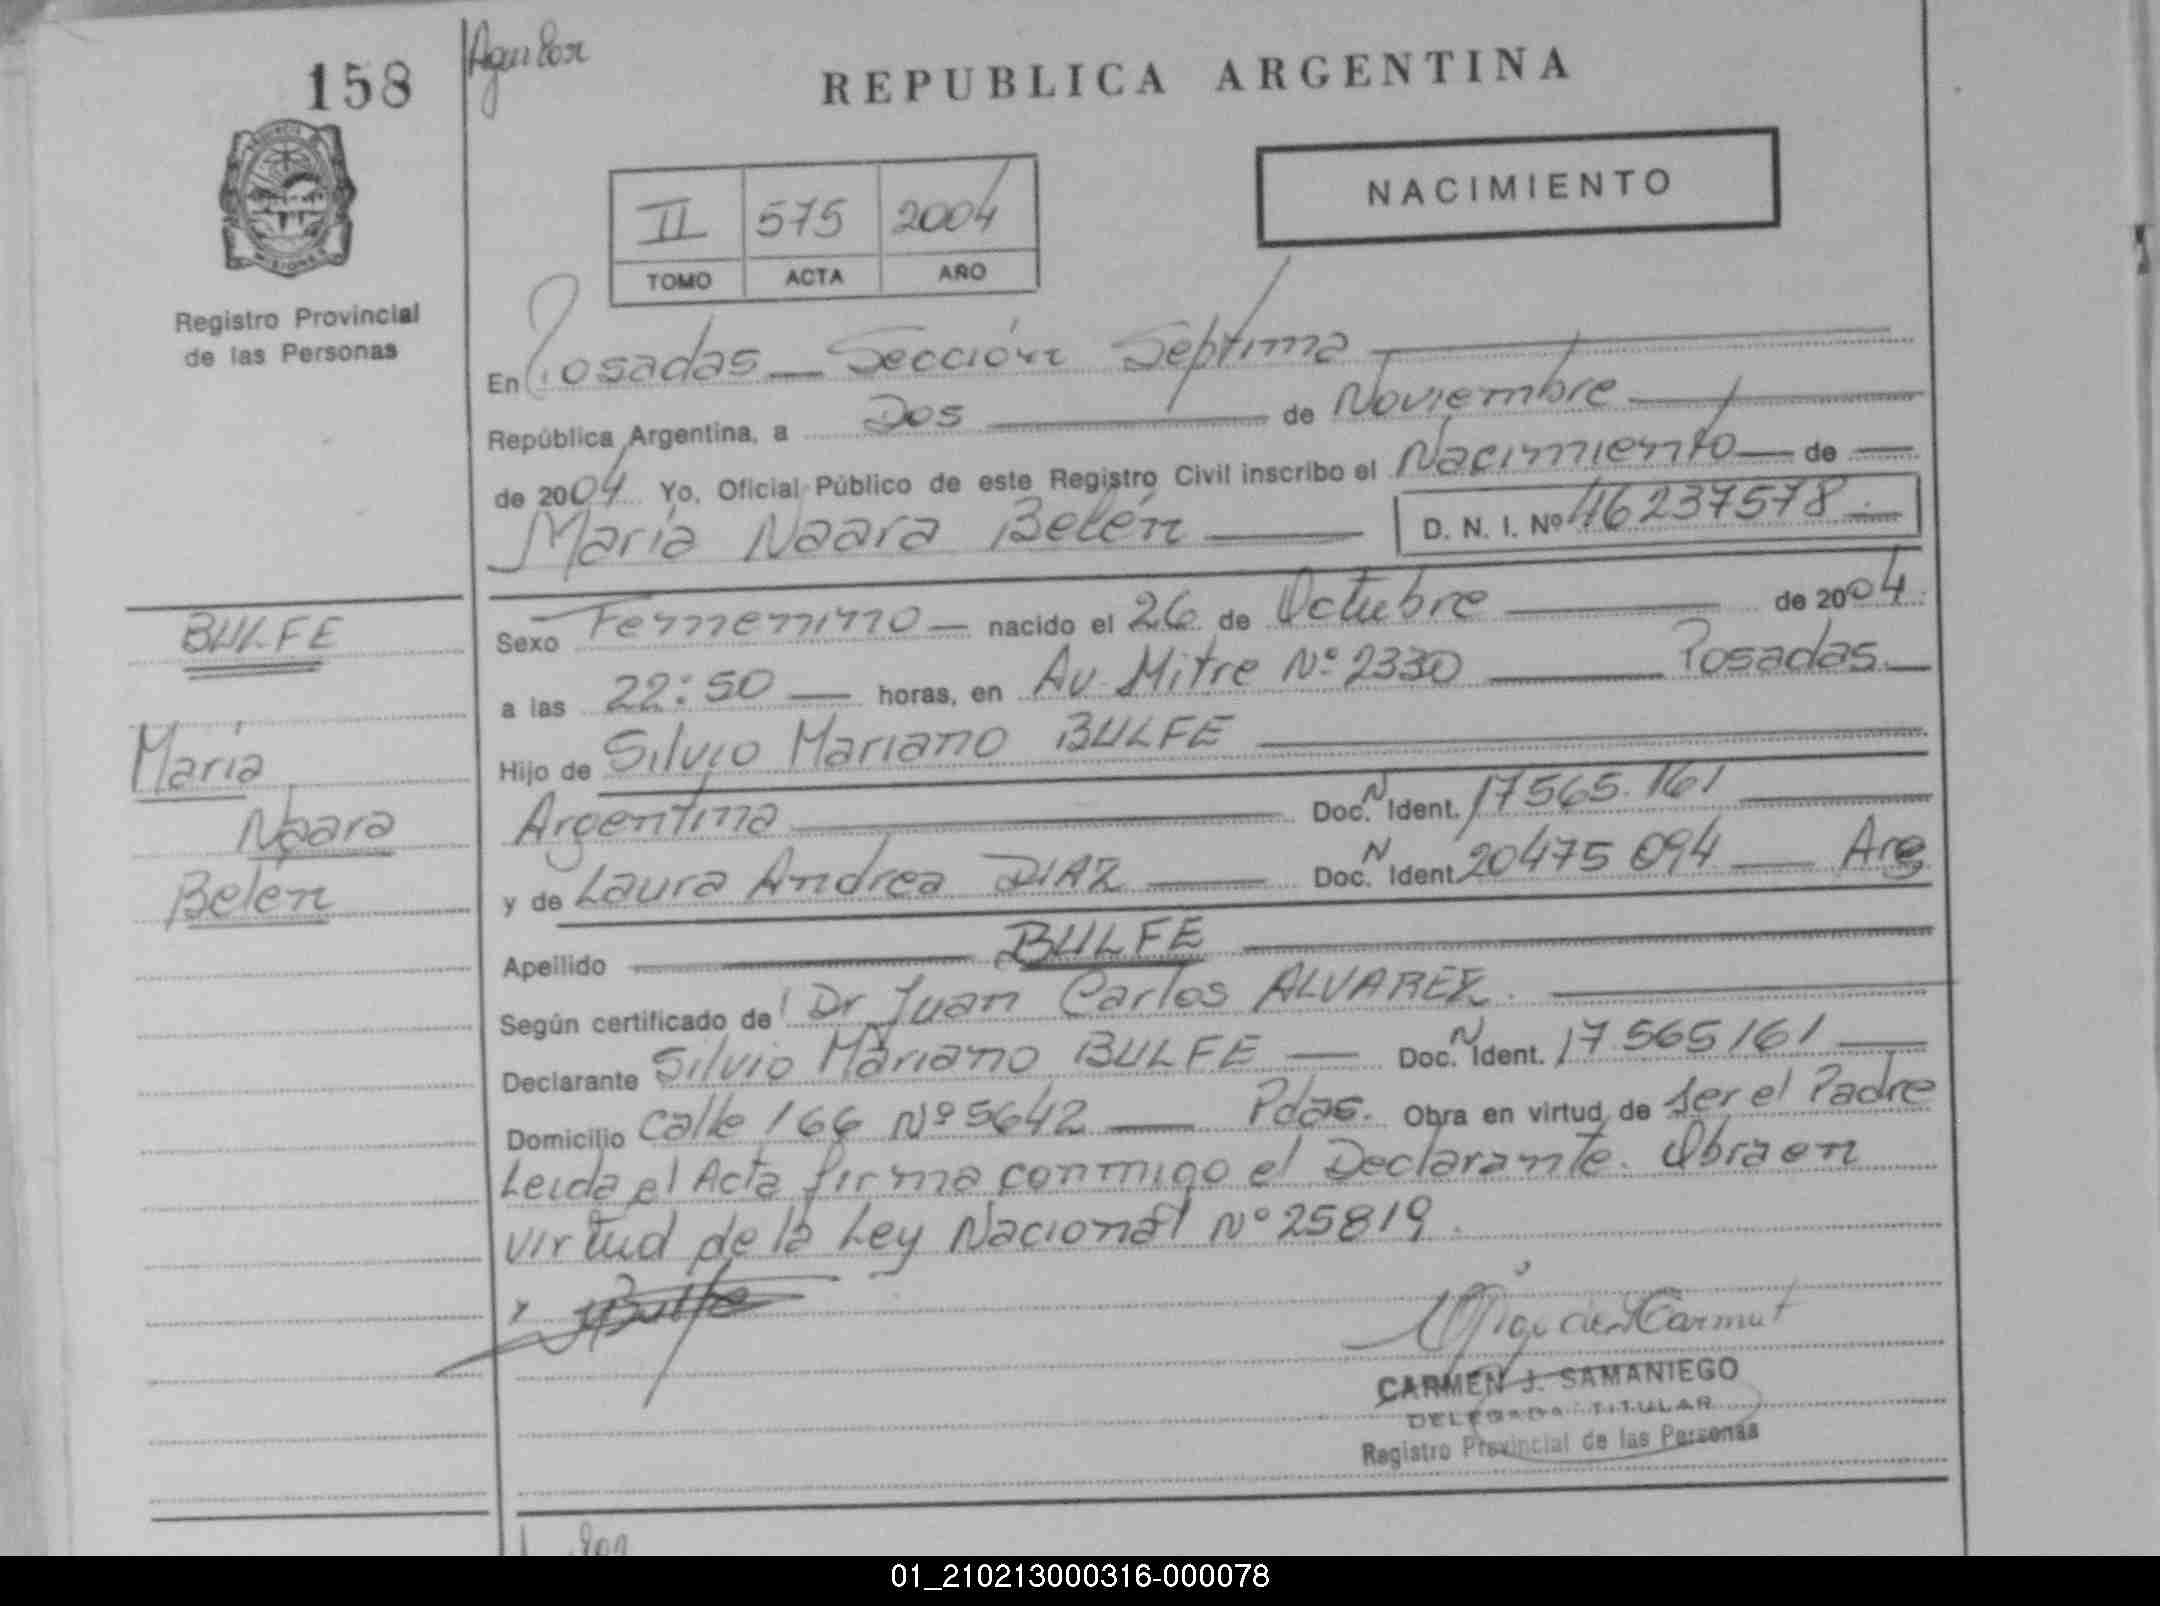 158
Aguilar
REPUBLICA ARGENTINA
II 575 2004
TOMO ACTA AÑO
NACIMIENTO
Registro Provincial
de las Personas
En Posadas — Sección Septima
República Argentina, a Dos de Noviembre
de 2004 Yo, Oficial Público de este Registro Civil inscribo el Nacimiento — de —
María Naara Belén — D. N. I. Nº 46237578.—
BULFE
María
Naara
Belén
Sexo Femenino — nacido el 26 de Octubre — de 2004
a las 22:50 — horas, en Av. Mitre Nº 2330 — Posadas.—
Hijo de Silvio Mariano BULFE
Argentina — Doc. N Ident. 17565.161 —
y de Laura Andrea DIAZ — Doc. N Ident. 20475094 — Arg
Apellido — BULFE —
Según certificado de Dr Juan Carlos ALVAREZ. —
Declarante Silvio Mariano BULFE — Doc. N Ident. 17565161 —
Domicilio Calle 166 Nº 5642 — Pdas. Obra en virtud de Ser el Padre
Leida el Acta firma conmigo el Declarante. Obra en
virtud de la Ley Nacional Nº 25819.
x Bulfe
CARMEN J. SAMANIEGO
DELEGADA TITULAR
Registro Provincial de las Personas
01_210213000316-000078